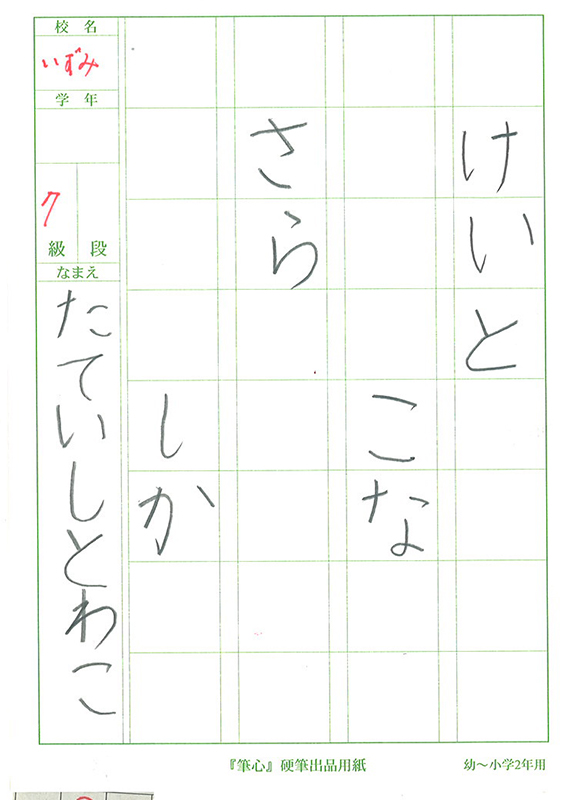 けいと
こな
さら
しか
校名
いずみ
学年
7
級 段
なまえ
たていしとわこ
『筆心』硬筆出品用紙
幼〜小学2年用